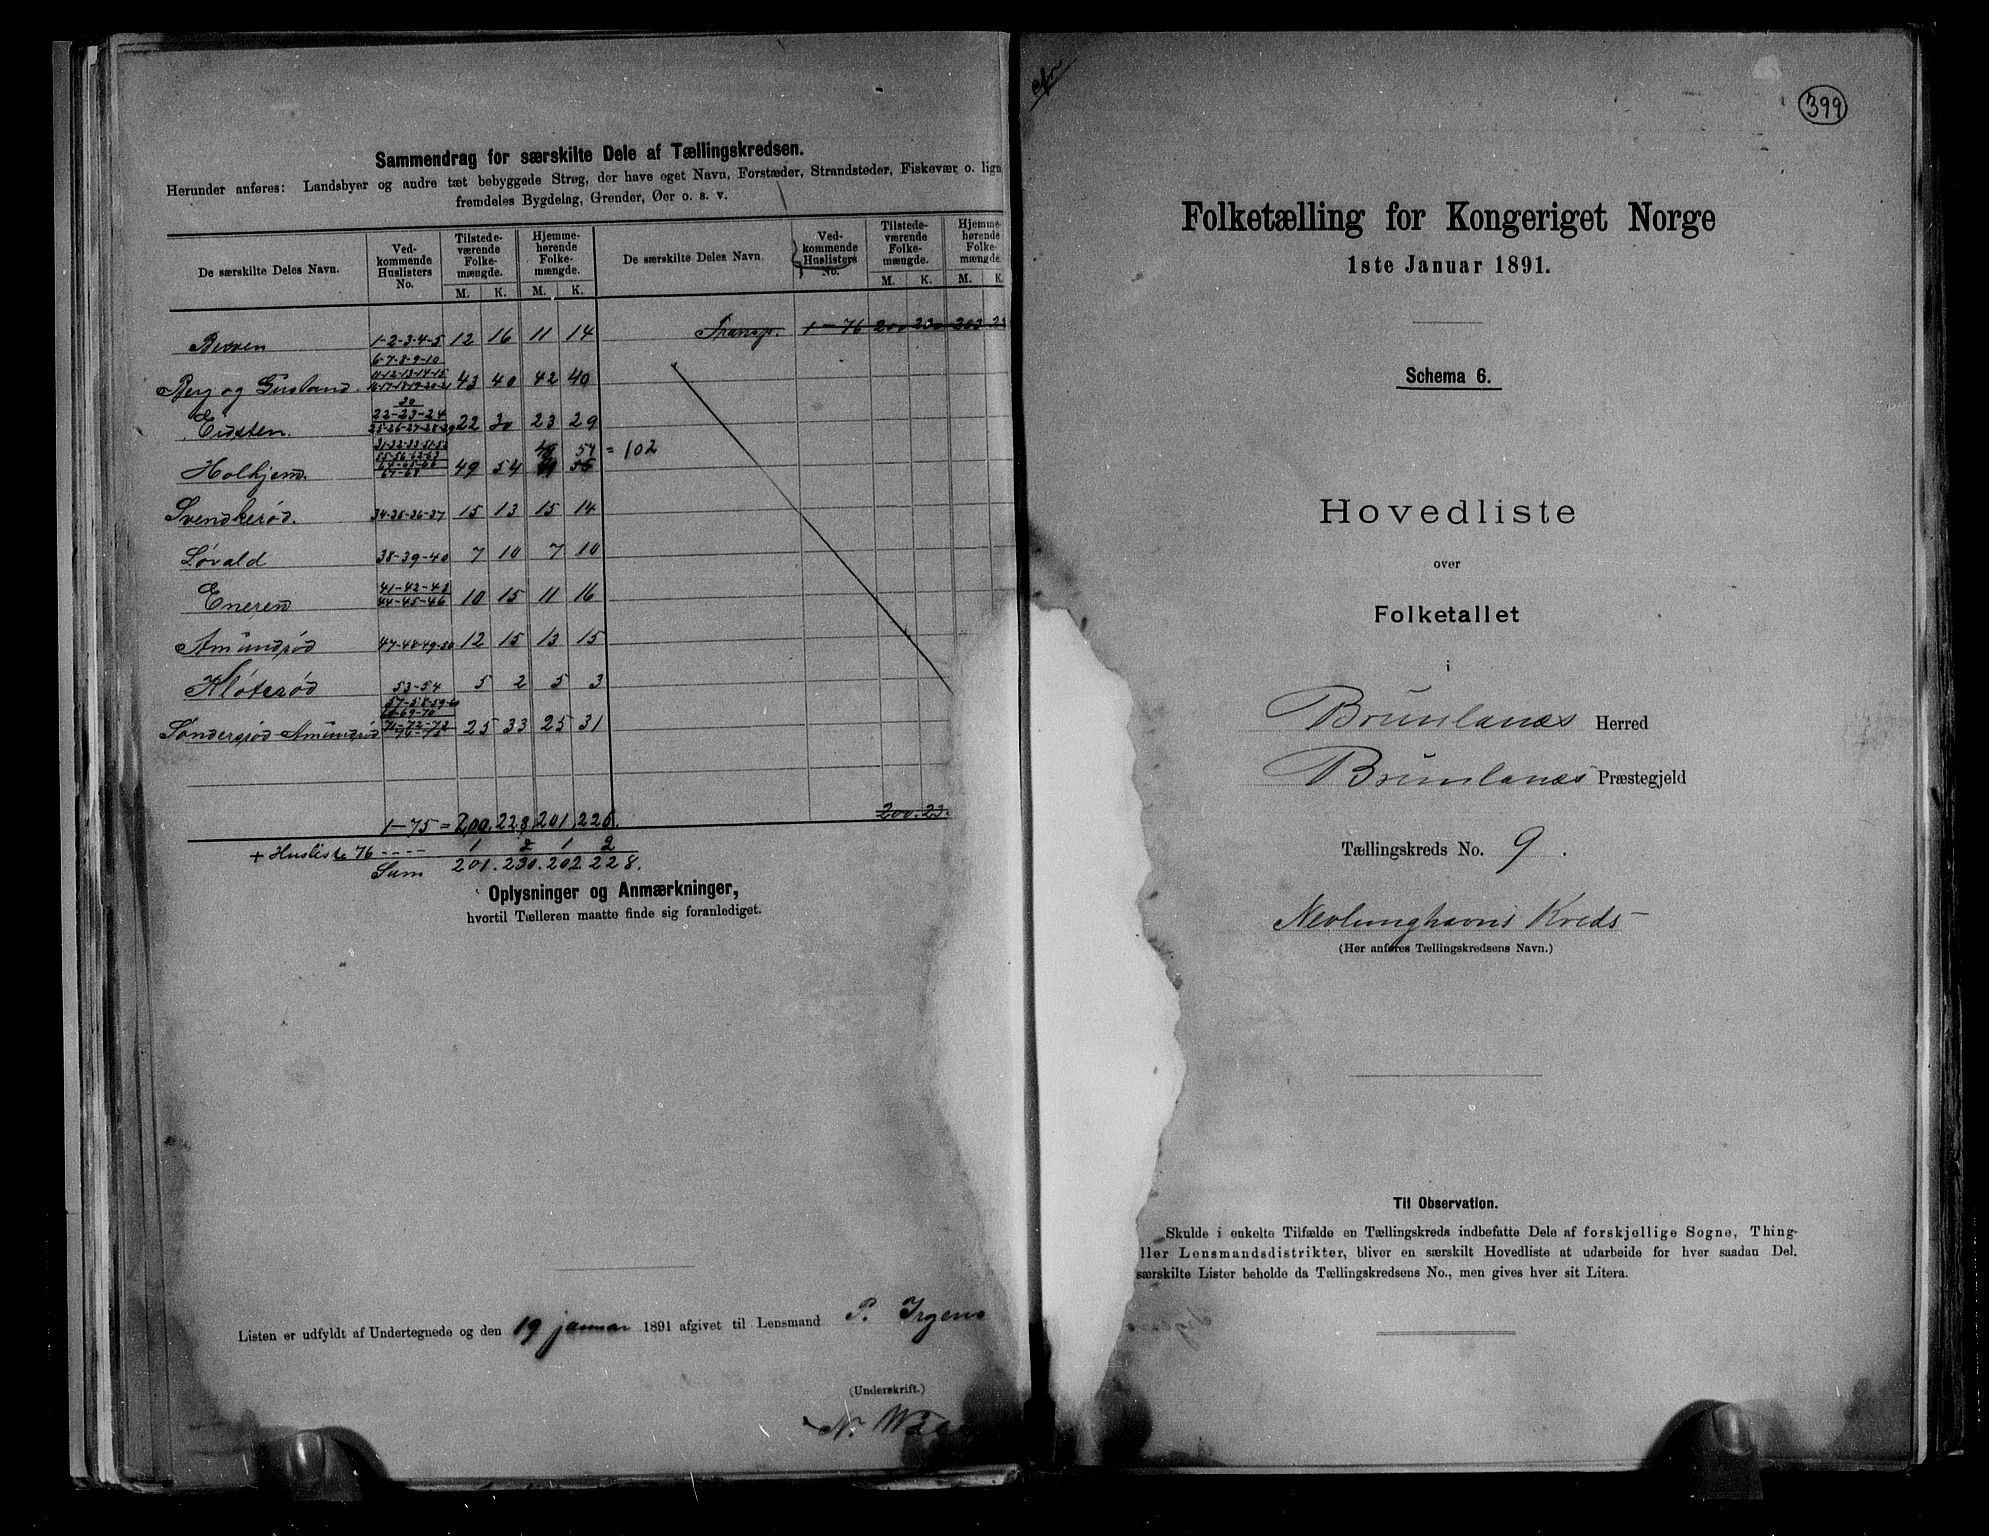 Sammendrag for særskilte Dele af Tællingskredsen.
Herunder anføres: Landsbyer og andre tæt bebyggede Strøg, der have eget Navn, Forstæder, Strandsteder, Fiskevær o. lign
fremdeles Bygdelag, Grender, Øer o. s. v.
De særskilte Deles Navn. Vedkommende Huslisters No. Tilstedeværende Folkemængde. M. K. Hjemmehørende Folkemængde. M. K. De særskilte Deles Navn. Vedkommende Huslisters No. Tilstedeværende Folkemængde. M. K. Hjemmehørende Folkemængde. M. K.
1-2-3-4-5 12 16 11 14 Transp. 1-76 200 230 203 23
6-7-8-9-10
11-12-13-14-15
Berg og Gusland. 16-17-18-19-20-21 43 40 42 40
30
22-23-24
Eidsten. 25-26-27-28-29 22 30 23 29
31-32-33-51-52
55-56-62-63 48 54 = 102
64-65-66
Holhjem. 67-68 49 54 55
Svenskerød. 34-35-36-37 15 13 15 14
Løvald 38-39-40 7 10 7 10
41-42-43
Eneren 44-45-46 10 15 11 16
Amundrød 47-48-49-50 12 15 13 15
Kløterød 53-54 5 2 5 3
57-58-59-60
69-70
71-72-73
Søndersrød Amundrød 74-75 25 33 25 31
1-75 = 200. 228. 201. 226. 200. 23
+ Husliste 76 ---- 1 2 1 2
Sum 201. 230. 202 228.
Oplysninger og Anmærkninger,
hvortil Tælleren maatte finde sig foranlediget.
Listen er udfyldt af Undertegnede og den 19 januar 1891 afgivet til Lensmand P. Irgens
(Underskrift.)
N.
399
Folketælling for Kongeriget Norge
1ste Januar 1891.
Schema 6.
Hovedliste
over
Folketallet
i
Brunlanæs Herred
Brunlanæs Præstegjeld
Tællingskreds No. 9.
Nevlunghavns Kreds
(Her anføres Tællingskredsens Navn.)
Til Observation.
Skulde i enkelte Tilfælde en Tællingskreds indbefatte Dele af forskjellige Sogne, Thing-
ller Lensmandsdistrikter, bliver en særskilt Hovedliste at udarbeide for hver saadan Del.
særskilte Lister beholde da Tællingskredsens No., men gives hver sit Litera.